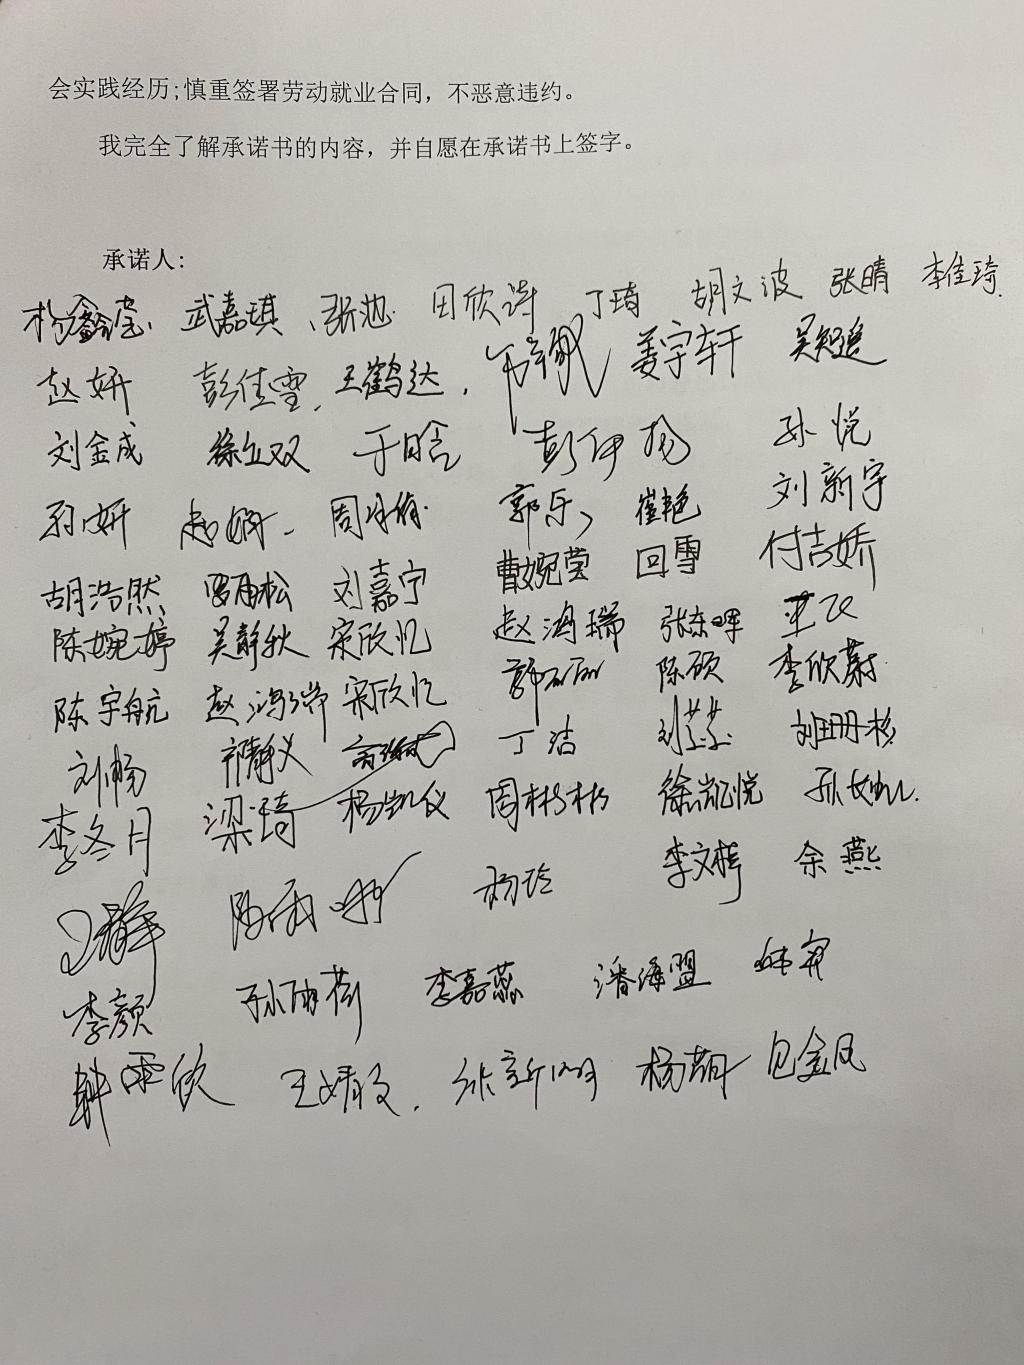 会实践经历;慎重签署劳动就业合同，不恶意违约。
我完全了解承诺书的内容，并自愿在承诺书上签字。
承诺人:
杨鑫滢、 武嘉琪 、张弛 田欣诗 丁琦 胡文波 张晴 李佳琦.
赵妍 彭佳雪. 王鹤达. 姜宇轩 吴知遥
刘金成 徐立双 于晗 彭伊扬 孙悦
孙妍 赵娴 郭乐 崔艳 刘新宇
胡浩然 罗雨松 刘嘉宁 曹婉莹 回雪 付吉娇
陈婉婷 吴静秋 宋欣忆 赵鸿瑞 张东晖
陈宇航 赵鸿瑞 宋欣忆 郭丽丽 陈硕 李欣蔚
刘畅 祁静义 丁洁 刘芸芸 刘珊杉
李冬月 梁琦 杨凯仪 周彬彬 徐凯悦
杨玲 李文桦 余燕
李颜 孙雨荷 李嘉蕊 潘海盟
韩雨欣 王婧 徐新明 杨萌 包金凤